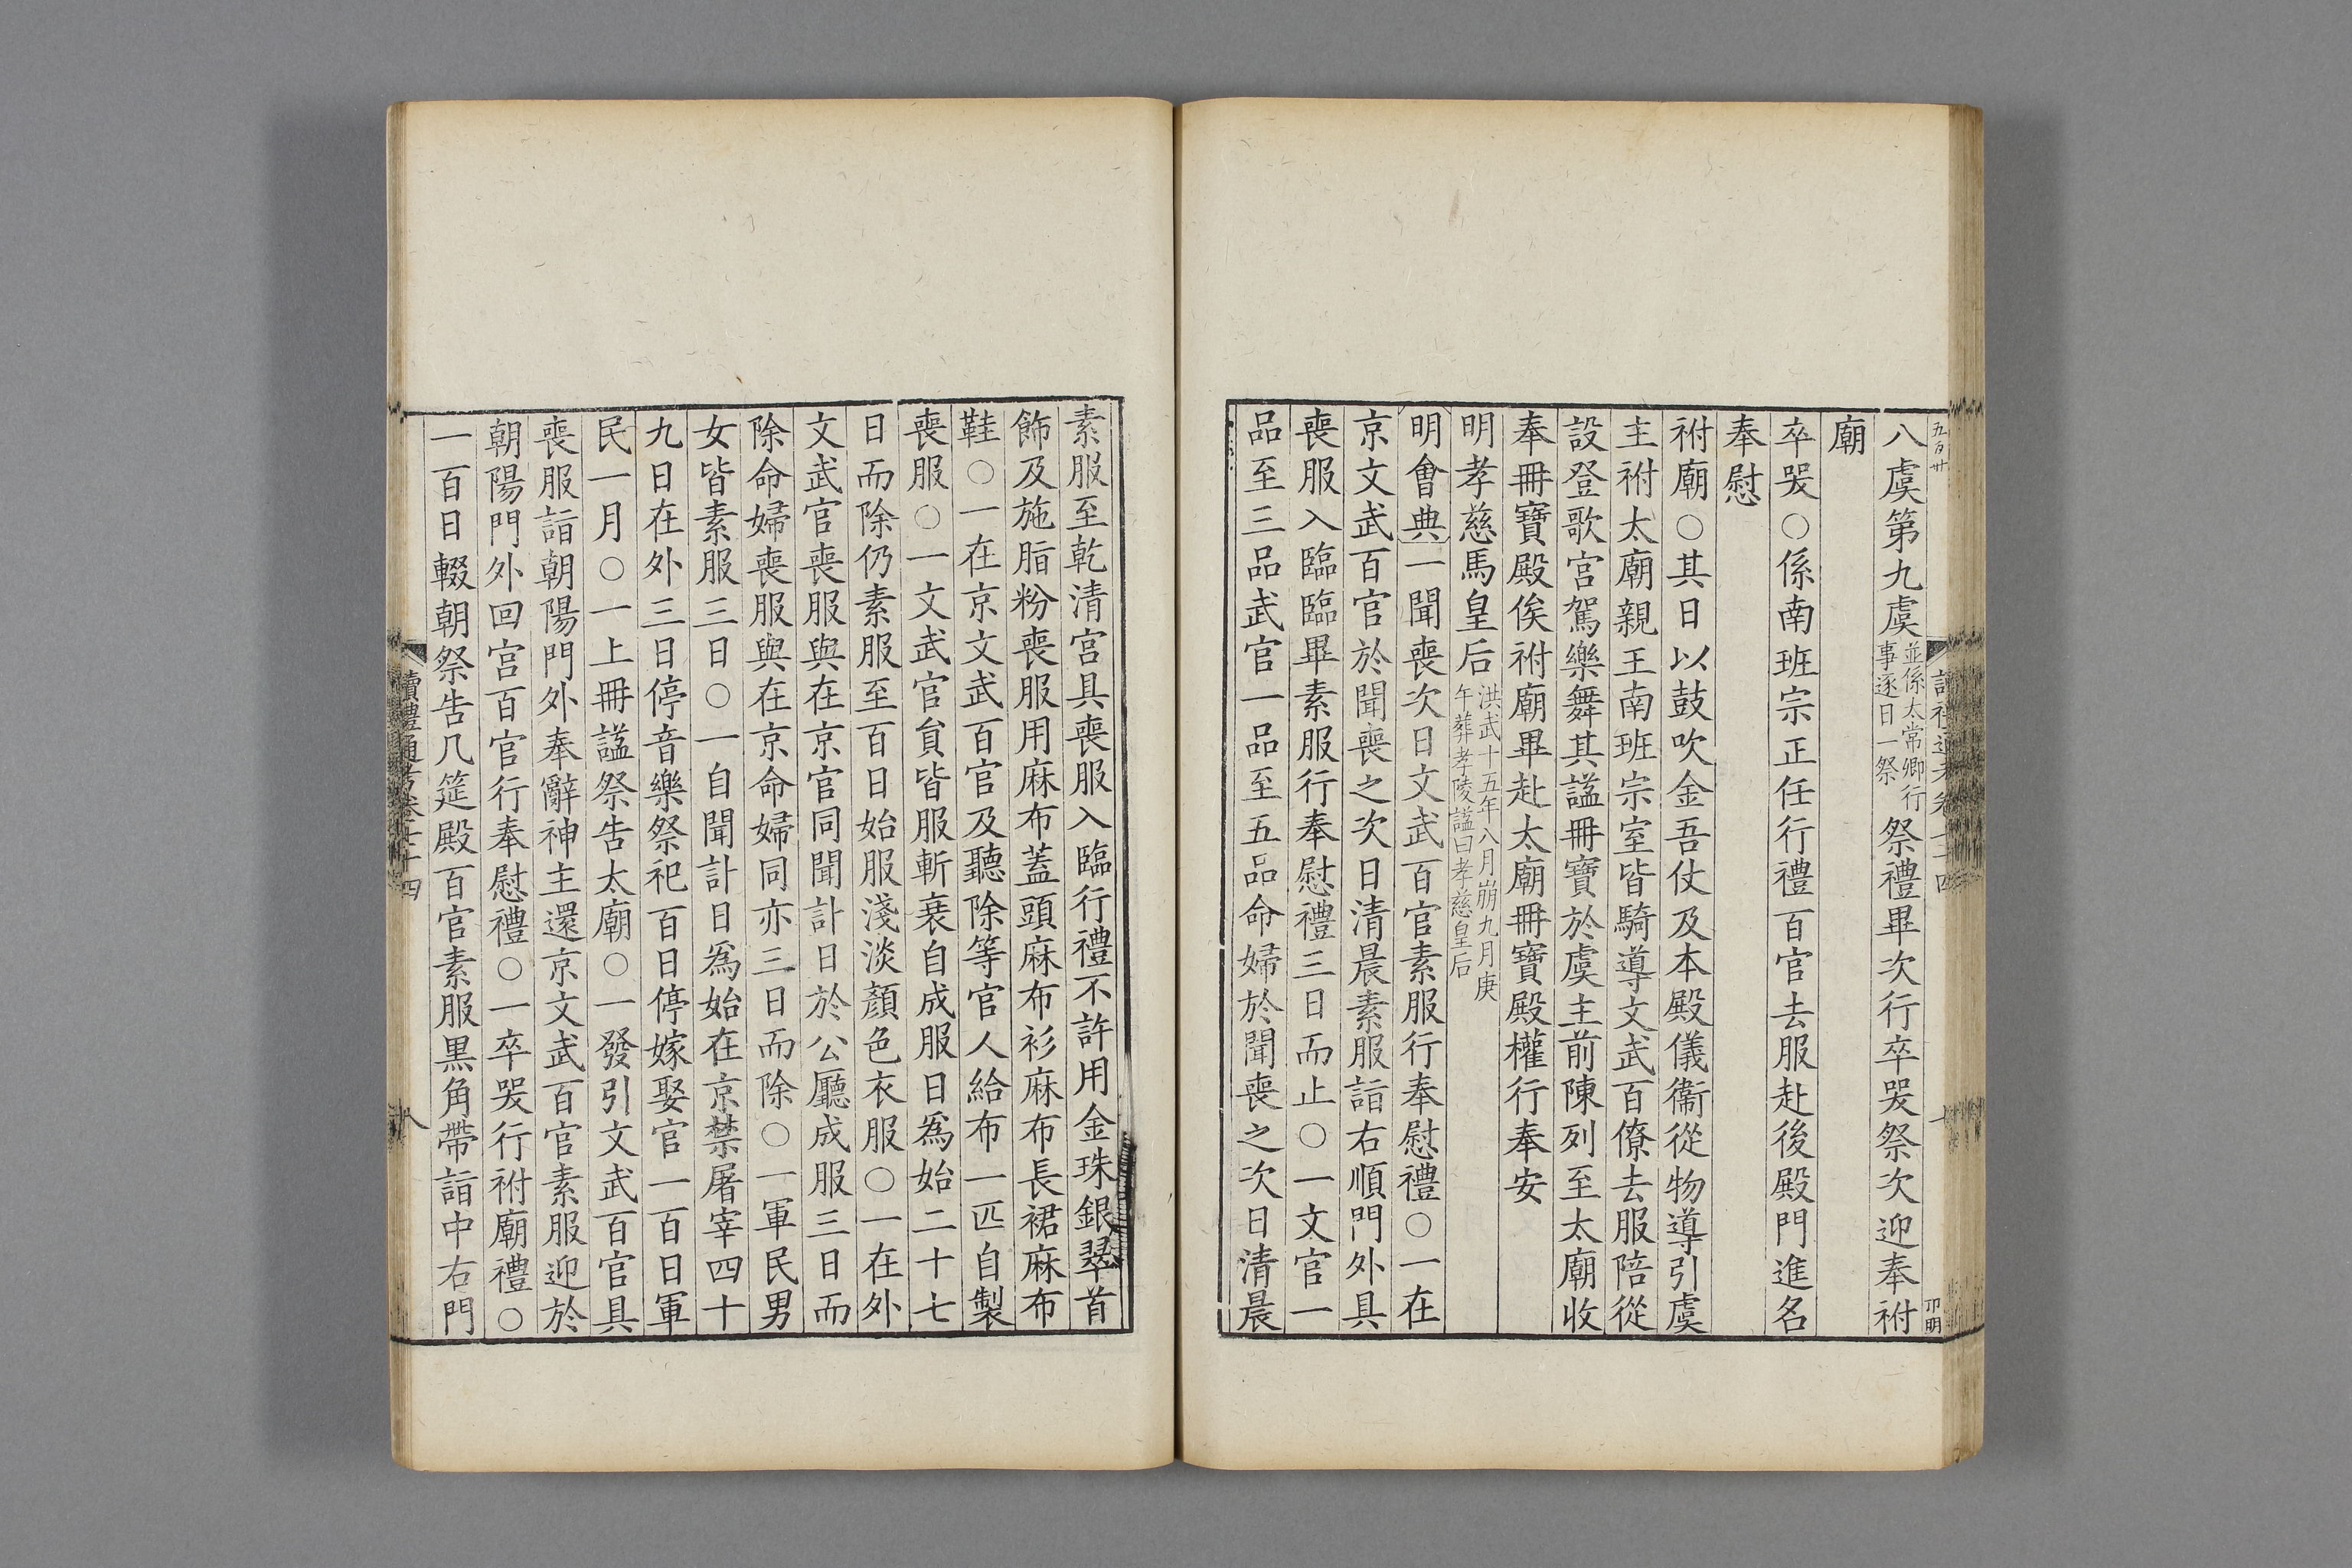 五百卅
八虞第九虞並係太常卿行事逐日一祭祭禮畢次行卒哭祭次迎奉祔
廟
卒哭○係南班宗正任行禮百官去服赴後殿門進名
奉慰
祔廟○其日以鼓吹金吾仗及本殿儀衞從物導引虞
主祔太廟親王南班宗室皆騎導文武百僚去服陪從
設登歌宮駕樂舞其謚冊寶於虞主前陳列至太廟收
奉冊寶殿俟祔廟畢赴太廟冊寶殿權行奉安
明孝慈馬皇后洪武十五年八月崩九月庚午葬孝陵謚曰孝慈皇后
明會典一聞喪次日文武百官素服行奉慰禮○一在
京文武百官於聞喪之次日清晨素服詣右順門外具
喪服入臨臨畢素服行奉慰禮三日而止○一文官一
品至三品武官一品至五品命婦於聞喪之次日清晨
素服至乾清宮具喪服入臨行禮不許用金珠銀翠首
飾及施脂粉喪服用麻布蓋頭麻布衫麻布長裙麻布
鞋○一在京文武百官及聽除等官人給布一匹自製
喪服○一文武官員皆服斬衰自成服日爲始二十七
日而除仍素服至百日始服淺淡顏色衣服○一在外
文武官喪服與在京官同聞訃日於公廳成服三日而
除命婦喪服與在京命婦同亦三日而除○一軍民男
女皆素服三日○一自聞訃日爲始在京禁屠宰四十
九日在外三日停音樂祭祀百日停嫁娶官一百日軍
民一月○一上冊謚祭告太廟○一發引文武百官具
喪服詣朝陽門外奉辭神主還京文武百官素服迎於
朝陽門外回宮百官行奉慰禮○一卒哭行祔廟禮○
一百日輟朝祭告几筵殿百官素服黒角帶詣中右門
讀禮通考卷七十四
八